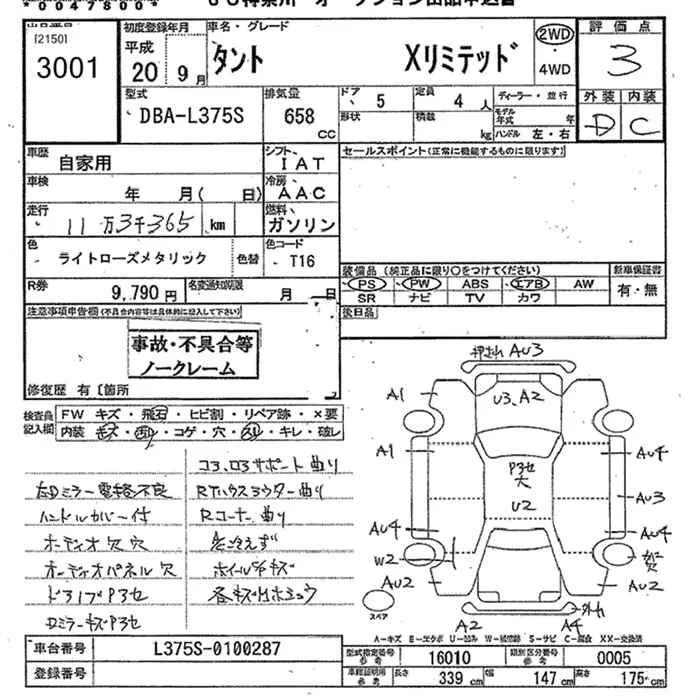 00478004
[2150]
3001
初度登録年月
平成
20 9月
車名・グレード
タント Xリミテッド
2WD
4WD
評価点
3
外装 内装
D C
型式
DBA-L375S
排気量
658 cc
ドア 5
形状
定員 4 人
積載 kg
ディーラー・並行
モデル年式 年
ハンドル 左・右
車歴
自家用
シフト
IAT
セールスポイント(正常に機能するものに限ります)
車検 年 月( 日)
冷房
AAC
走行
11万3千365 km
燃料
ガソリン
色
ライトローズメタリック
色替
色コード
T16
装備品(純正品に限り○をつけてください)
新車保証書
PS PW ABS エアB AW
有・無
SR ナビ TV カワ
R券
9,790円
名変通知期限
月 日
後日品
注意事項申告欄(不具合内容等は具体的に記入して下さい)
事故・不具合等
ノークレーム
修復歴 有 [箇所
検査員記入欄
FW キズ・飛石・ヒビ割・リペア跡・×要
内装 キズ・汚れ・コゲ・穴・スリ・キレ・破レ
コア、ロアサポート曲り
左Dミラー電格不良
ハンドルカバー付
Rコーナー曲り
オーディオ欠 穴
オーディオパネル欠
AU3
A1
U3、A2
A1
AU4
大
AU3
U2
AU4
AU4
W2
AU2
AU2
スペア
A2
A4
A-キズ E-エクボ U-凹み W-補修跡 S-サビ C-腐食 XX-交換済
車台番号
L375S-0100287
登録番号
型式指定番号
参考
16010
類別区分番号
参考
0005
車検証明用
参考
長さ 339 cm
幅 147 cm
高さ 175 cm